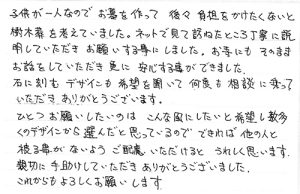 子供が一人なので お墓を作って 後々負担をかけたくないと
樹木葬を考えていました。ネットで見て訪ねたところ丁寧に説
明していただき お願いする事にしました。お寺にも そのまま
お話をしていただき更に 安心する事ができました。
石に刻む デザインも 希望を聞いて 何度も 相談に乗って
いただき ありがとうございます。
ひとつ お願いしたいのは こんな風にしたいと希望し数多
くのデザインから 選んだと思っているので できれば 他の人と
被る事がないよう ご配慮 いただけると うれしく思います。
親切に 手助けしていただき ありがとうございました。
これからも よろしくお願いします